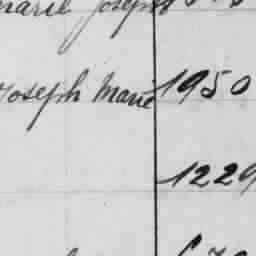 Marie Joseph
Joseph Marie 1950
1229